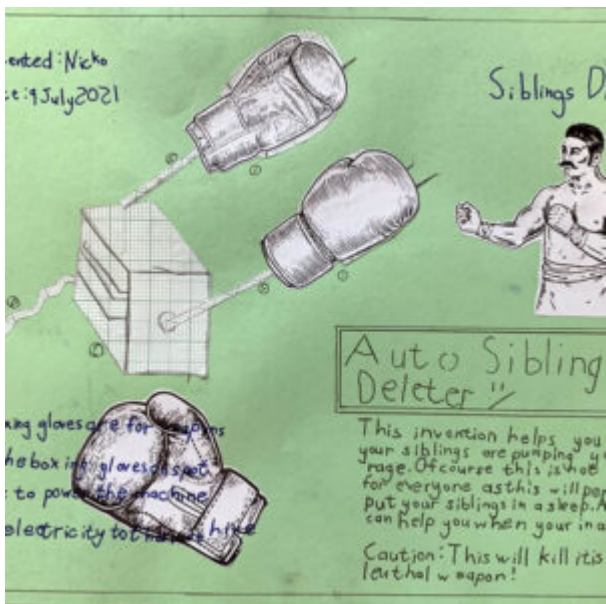 ented: Nicko
te: 9 July 2021
Siblings D
Auto Sibling
Deleter
This invention helps you
your siblings are pumping y
rage. Ofcourse this is not
for everyone as this will per
put your siblings in a sleep. A
can help you when your in a
Caution: This will kill it is
leuthal weapon!
xing gloves are for weapons
he boxing gloves on spot
to power the machine
electricity to